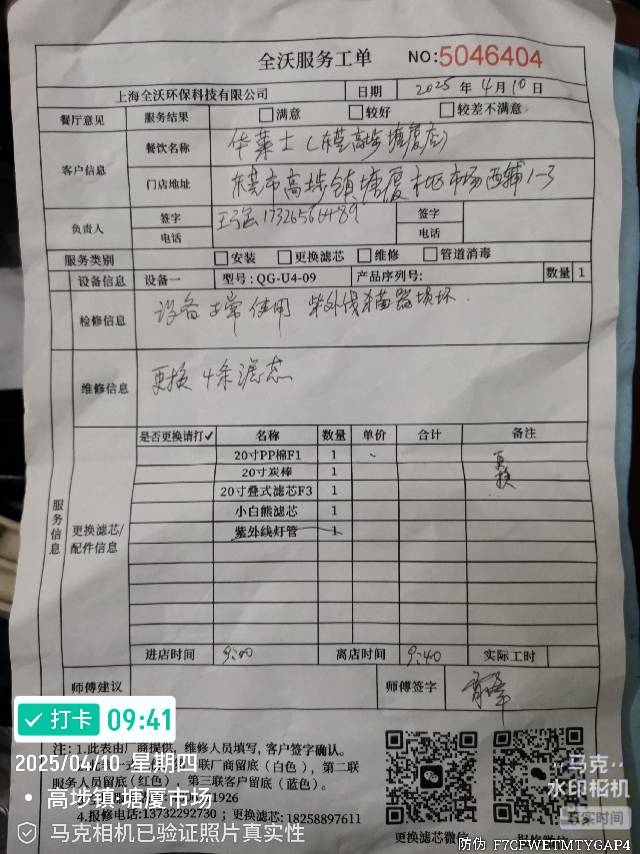 全沃服务工单 NO:5046404
上海全沃环保科技有限公司 日期 2025年4月10日
餐厅意见 服务结果 □满意 □较好 □较差不满意
客户信息 餐饮名称 华莱士(东莞高埗塘厦店)
门店地址 东莞市高埗镇塘厦 市场西铺1-3
负责人 签字 签字
电话 17326564489 电话
服务类别 □安装 □更换滤芯 □维修 □管道消毒
设备信息 设备一 型号:QG-U4-09 产品序列号: 数量 1
检修信息 设备正常使用 紫外线杀菌器损坏.
维修信息 更换4条滤芯
服务信息
更换滤芯/配件信息
是否更换请打✓ 名称 数量 单价 合计 备注
20寸PP棉F1 1 更换
20寸炭棒 1
20寸叠式滤芯F3 1
小白熊滤芯 1
紫外线灯管 1
进店时间 9:00 离店时间 9:40 实际工时
师傅建议 师傅签字
打卡 09:41
注:1.此表由厂商提供,维修人员填写,客户签字确认。
2025/04/10 星期四
联厂商留底(白色),第二联
服务人员留底(红色),第三联客户留底(蓝色)。
高埗镇·塘厦市场
1926
4.报修电话:13732292730;18258897611
马克相机已验证照片真实性
更换滤芯微信
马克
水印相机
真实时间
防伪 F7CFWETMTYGAP4